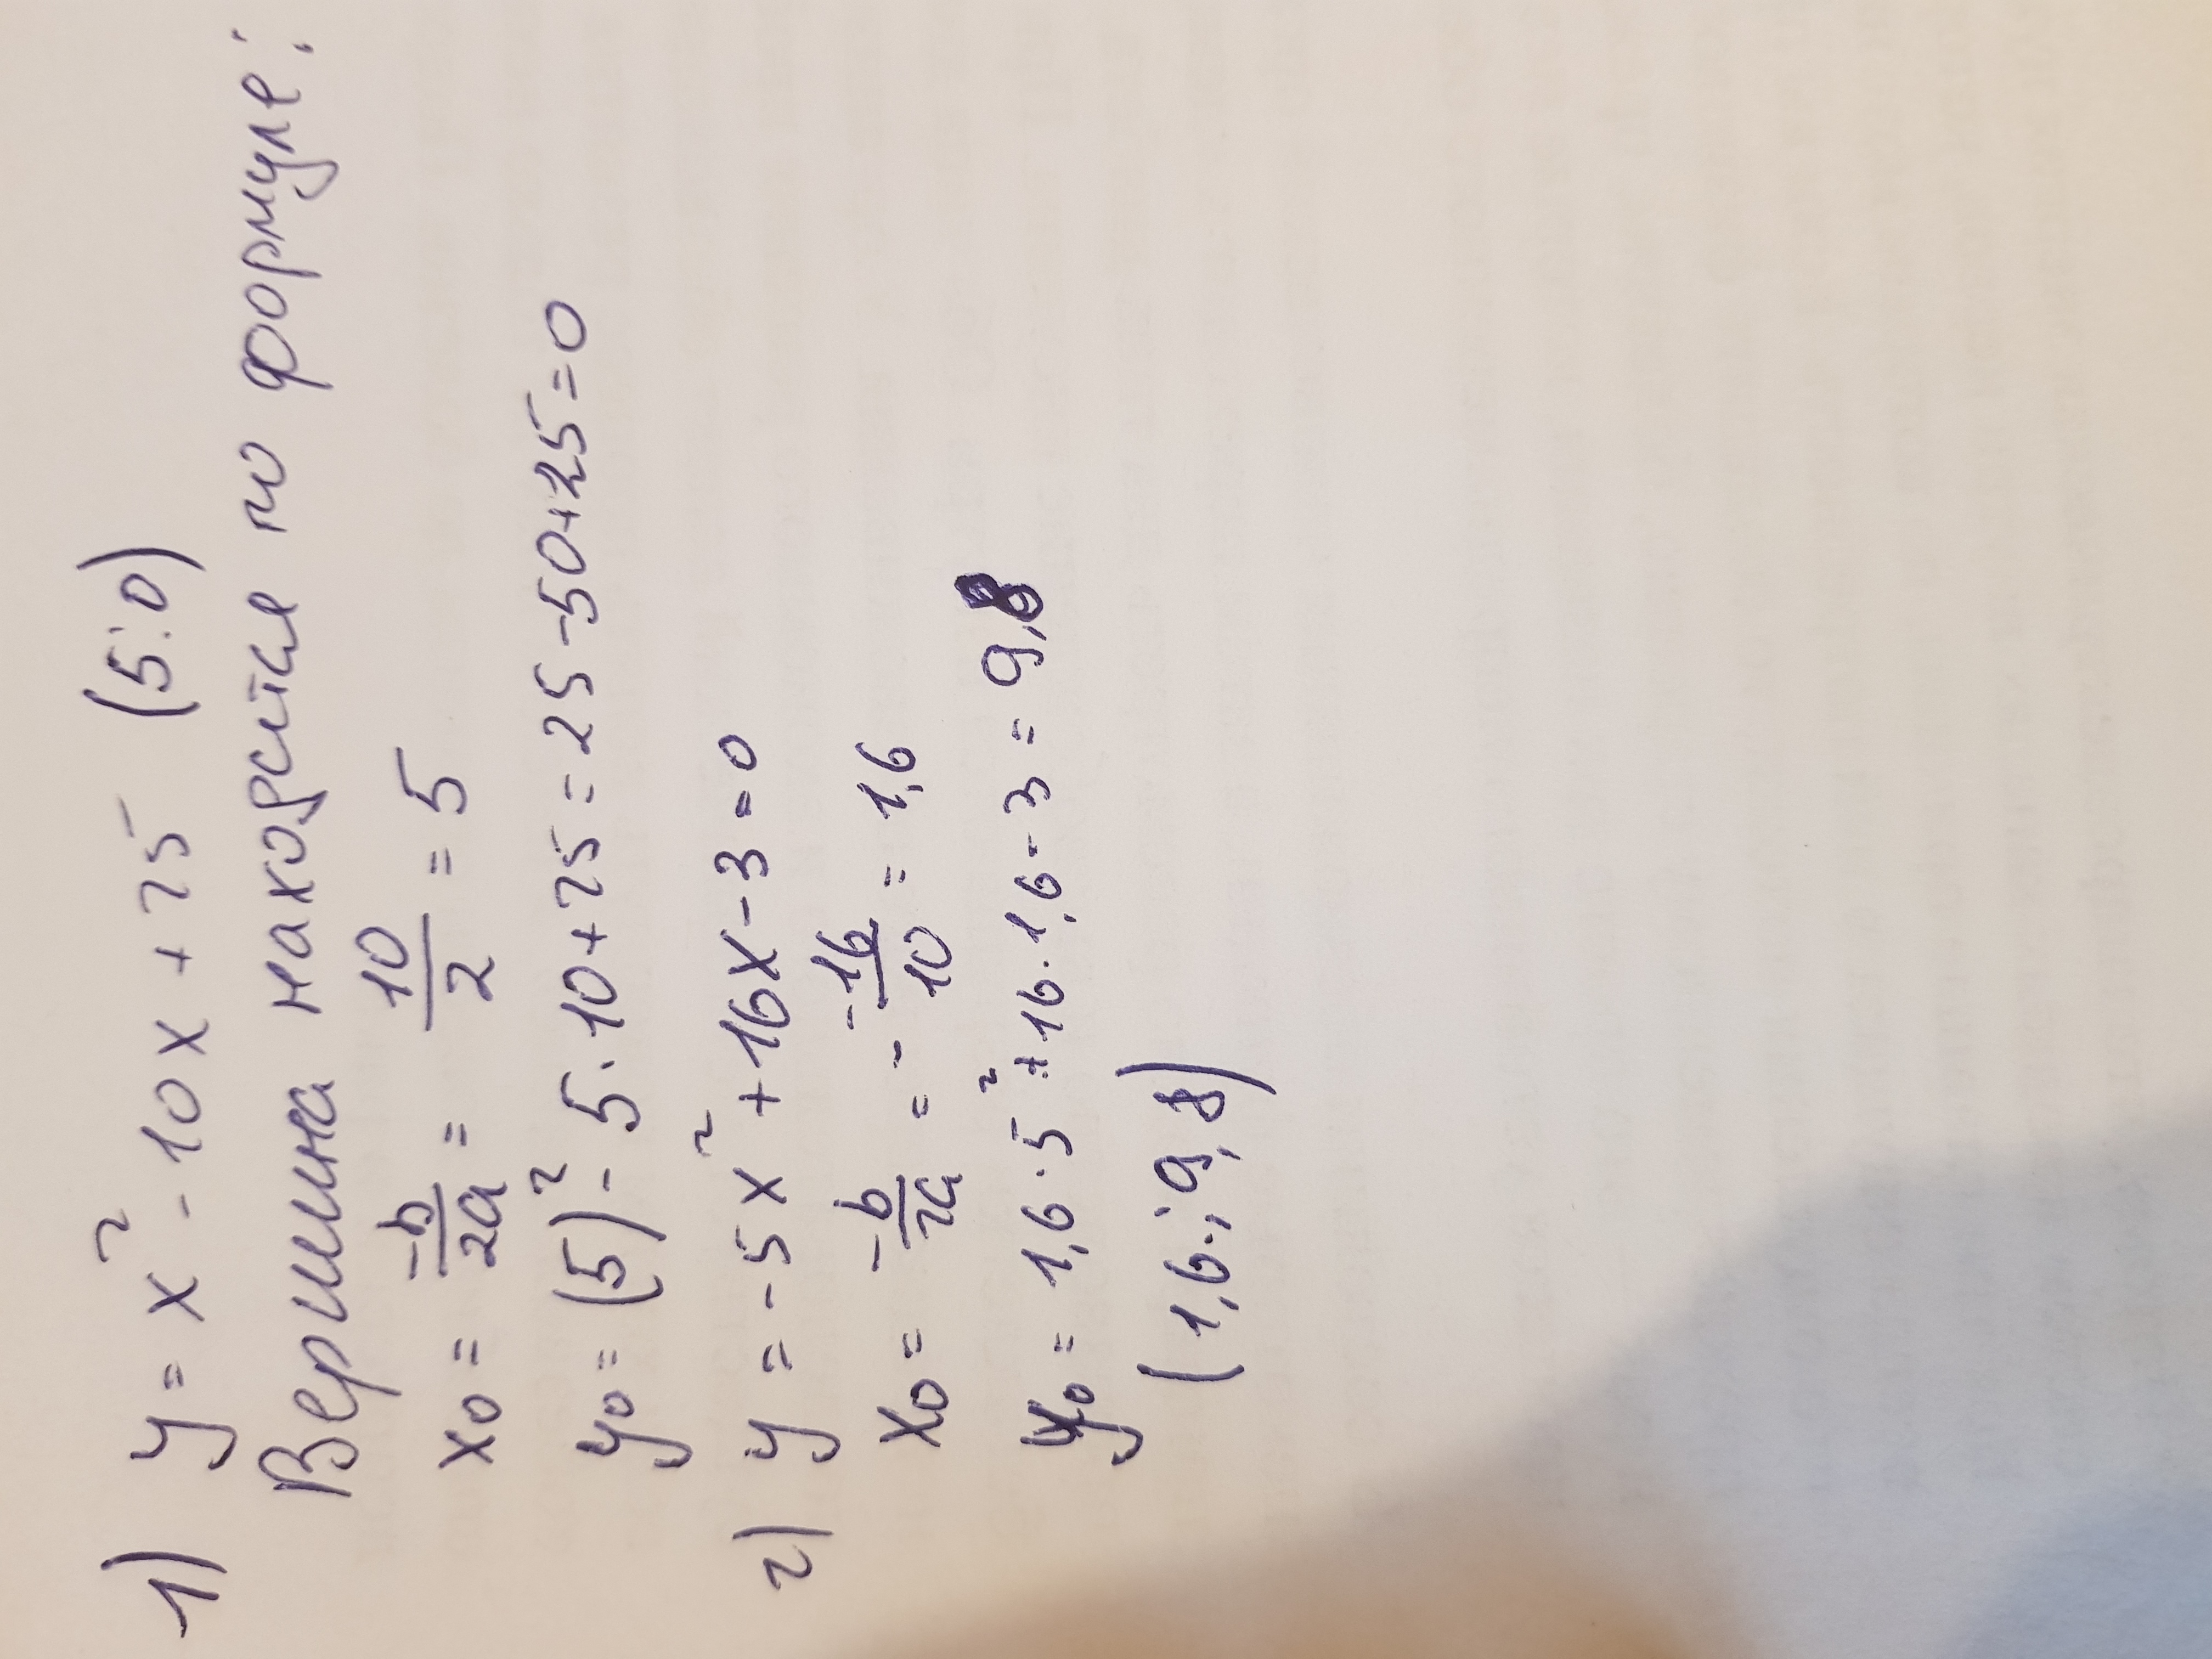 1) y = x² - 10x + 25 (5:0)
Вершина находится по формуле:
x₀ = -b/2a = 10/2 = 5
y₀ = (5)² - 5·10+25 = 25-50+25=0
2) y = -5x² + 16x-3=0
x₀ = -b/2a = - -16/10 = 1,6
y₀ = 1,6·5² + 16·1,6-3 = 9,8
(1,6.; 9,8)